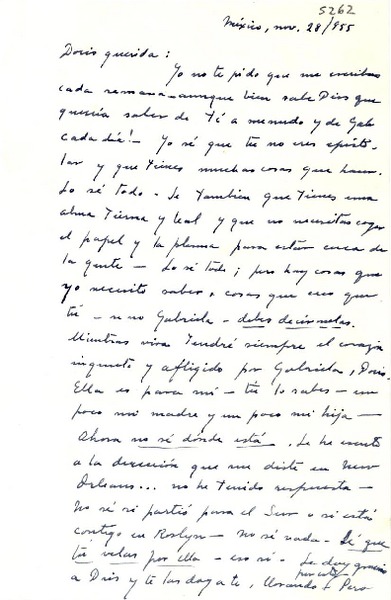 5262
México, nov. 28/955
Doris querida:
Yo no te pido que me escribas
cada semana - aunque bien sabe Dios que
querría saber de ti a menudo y de Gab
cada día! - Yo sé que tú no eres episto-
lar y que tienes muchas cosas que hacer.
Lo sé todo - Sé también que tienes una
alma tierna y leal y que no necesitas coger
el papel y la pluma para estar cerca de
la gente - Lo sé todo; pero hay cosas que
yo necesito saber, cosas que creo que
tú - y no Gabriela - debes decírmelas.
Mientras viva tendré siempre el corazón
inquieto y afligido por Gabriela, Doris.
Ella es para mí - tú lo sabes - un
poco mi madre y un poco mi hija -
Ahora no sé dónde está. Le he escrito
a la dirección que me diste en New
Orleans... no he tenido respuesta -
No sé si partió para el Sur o si está
contigo en Roslyn - no sé nada - Sé que
tú velas por ella - eso sí - Le doy gracias
por esto
a Dios y te las doy a ti, llorando - Pero